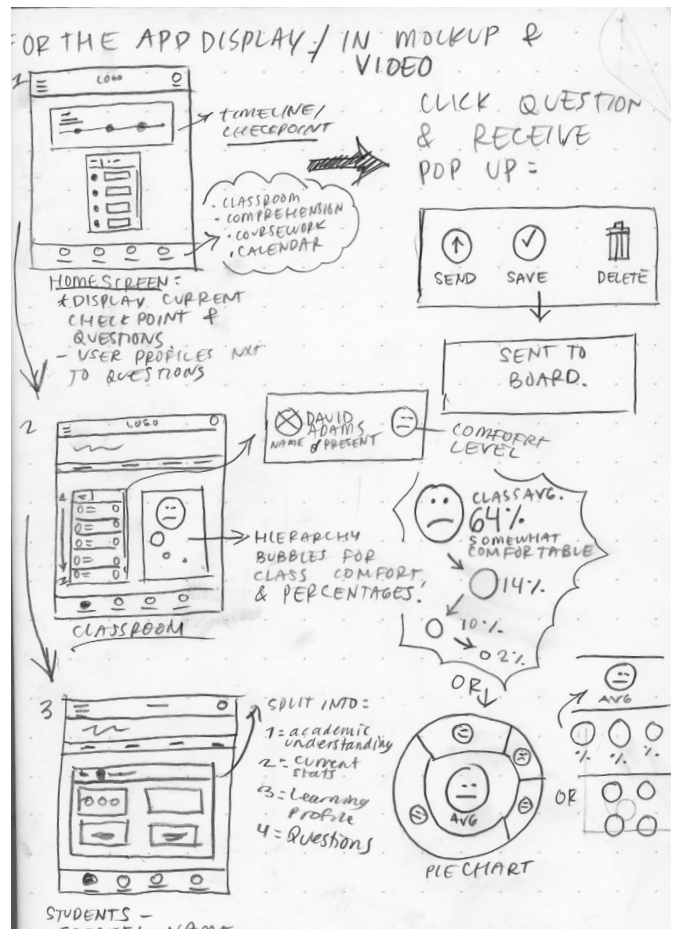 FOR THE APP DISPLAY / IN MOCKUP &
VIDEO
1
LOGO
TIMELINE/
CHECKPOINT
· CLASSROOM
- COMPREHENSION
· COURSEWORK
· CALENDAR
HOMESCREEN:
* DISPLAY CURRENT
CHECKPOINT &
QUESTIONS
- USER PROFILES NXT
TO QUESTIONS
CLICK QUESTION
& RECEIVE
POP UP =
SEND SAVE DELETE
SENT TO
BOARD.
2
LOGO
DAVID
ADAMS
NAME & PRESENT
COMFORT
LEVEL
HIERARCHY
BUBBLES FOR
CLASS COMFORT,
& PERCENTAGES!
CLASSROOM
CLASS AVG.
64%
SOMEWHAT
COMFORTABLE
14%
10%
2%
OR
3
SPLIT INTO:
1= academic
understanding
2= current
stats
3= Learning
profile
4= Questions
AVG
PIE CHART
AVG
% % %
OR
STUDENTS -